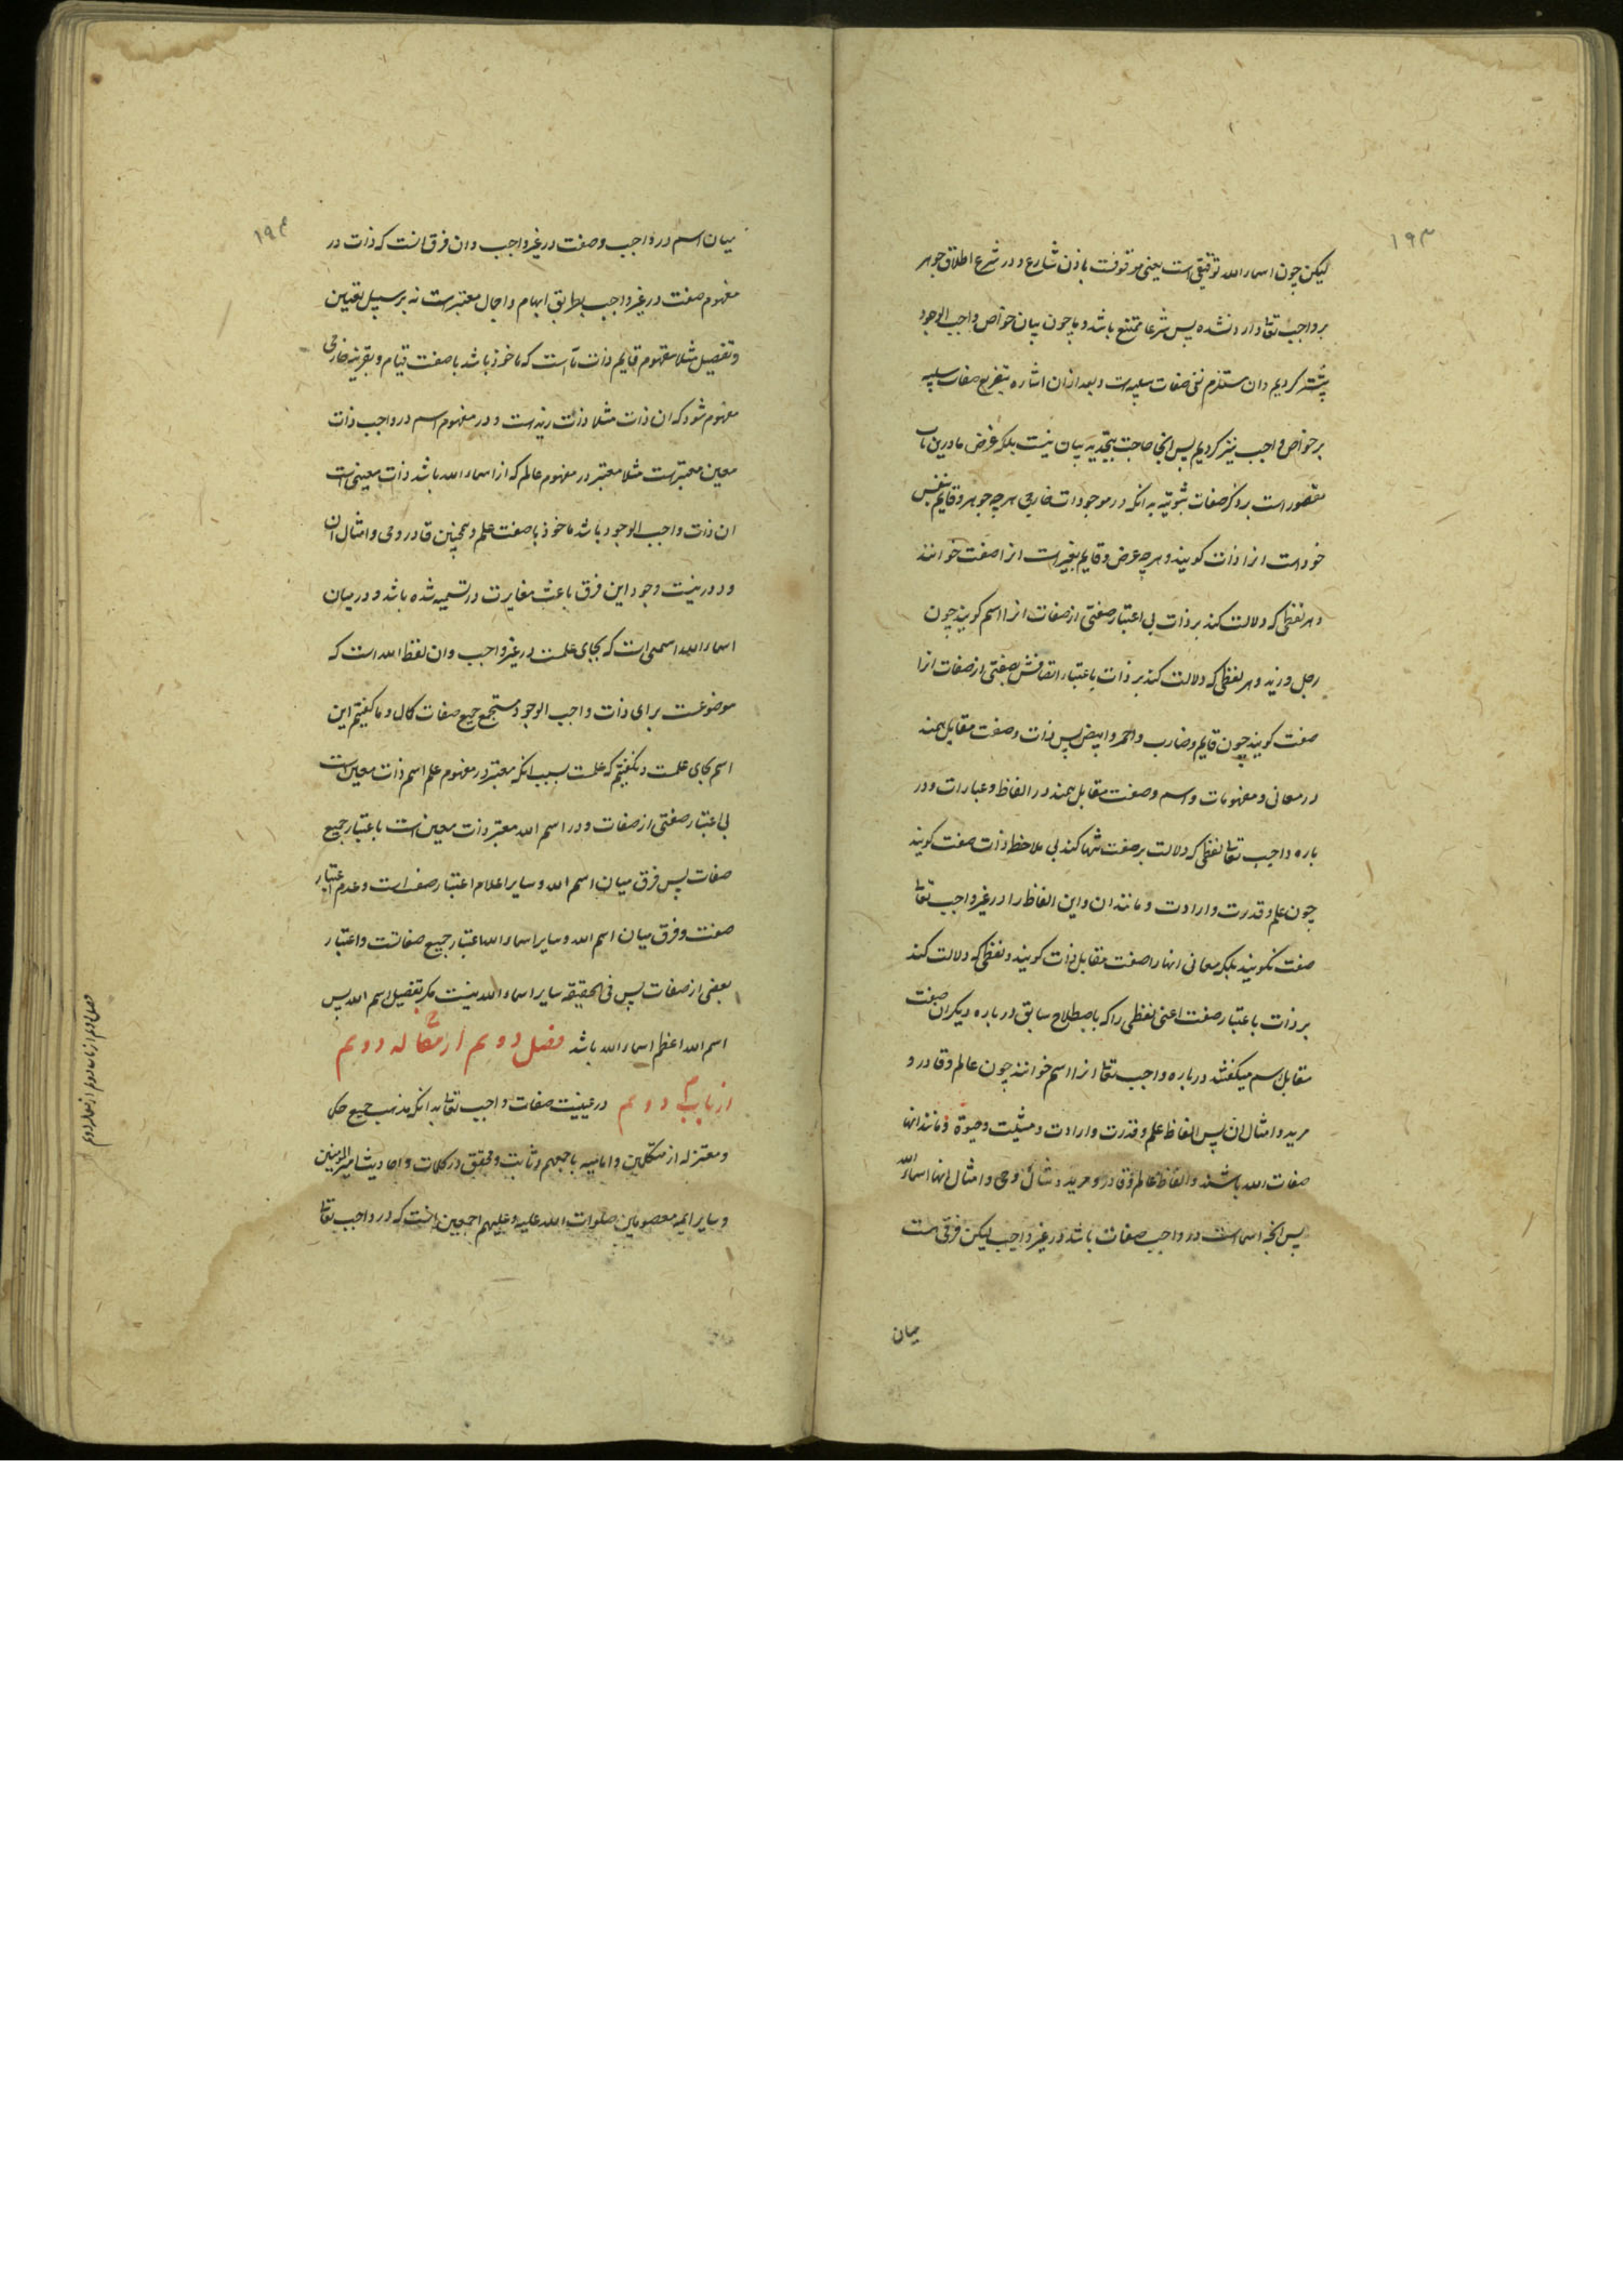 ۱۹۳
لیکن چون اسماء الله توقیفی است یعنی موقوفست باذن شارع و در شرع اطلاق جوهر
بر واجب تعالی وارد نشده پس شرعا ممتنع باشد و ما چون بیان خواص واجب الوجود
پیشتر کردیم و ان مستلزم نفی صفات سلبیه است و بعد از ان اشاره بتفریع صفات سلبیه
بر خواص واجب نیز کردیم پس اینجا حاجت بتجدید بیان نیست بلکه غرض ما درین باب
مقصور است بر ذکر صفات ثبوتیه بدانکه در موجودات خارجی هر چه جوهر و قایم بنفس
خود است انرا ذات کویند و هر چه عرض و قایم بغیر است انرا صفت خوانند
و هر لفظی که دلالت کند بر ذات بی اعتبار صفتی از صفات انرا اسم کویند چون
رجل و زید و هر لفظی که دلالت کند بر ذات باعتبار اتصافش بصفتی از صفات انرا
صفت کویند چون قایم و ضارب و احمر و ابیض پس ذات و صفت مقابل همند
در معانی و مفهومات و اسم و صفت مقابل همند در الفاظ و عبارات و در
باره واجب تعالی لفظی که دلالت بر صفت تنها کند بی ملاحظه ذات صفت کویند
چون علم و قدرت و ارادت و مانند ان و این الفاظ را در غیر واجب تعالی
صفت نکویند بلکه معانی انها را صفت مقابل ذات کویند و لفظی که دلالت کند
بر ذات باعتبار صفت اعنی لفظی را که باصطلاح سابق در باره دیکران صفت
مقابل اسم میکفتند در باره واجب تعالی انرا اسم خوانند چون عالم و قادر و
مرید و امثال ان پس الفاظ علم و قدرت و ارادت و مشیت و حیوة و مانند انها
صفات الله باشند و الفاظ عالم و قادر و مرید و شائی و حی و امثال انها اسماء الله
پس انچه اسماست در واجب صفات باشد در غیر واجب لیکن فرقی هست
میان
۱۹۴
میان اسم در واجب و صفت در غیر واجب و ان فرق انست که ذات در
مفهوم صفت در غیر واجب بطریق ابهام و اجمال معتبر است نه بر سبیل تعیین
و تفصیل مثلا مفهوم قایم ذات ما است که ماخوذ باشد با صفت قیام و بقرینه خارجی
مفهوم شود که ان ذات مثلا ذات زید است و در مفهوم اسم در واجب ذات
معین معتبر است مثلا معتبر در مفهوم عالم که از اسماء الله باشد ذات معینی است
ان ذات واجب الوجود باشد ماخوذ با صفت علم و همچنین قادر و حی و امثال ان
و دور نیست وجود این فرق باعث مغایرت در تسمیه شده باشد و در میان
اسماء الله اسمی است که بجای علمست در غیر واجب و ان لفظ الله است که
موضوعست برای ذات واجب الوجود مستجمع جمیع صفات کمال و ما کفتیم این
اسم بجای علمست و نکفتیم که علمست بسبب انکه معتبر در مفهوم علم اسم ذات معین است
بی اعتبار صفتی از صفات و در اسم الله معتبر ذات معین است باعتبار جمیع
صفات پس فرق میان اسم الله و سایر اعلام اعتبار صفت است و عدم اعتبار
صفت و فرق میان اسم الله و سایر اسماء الله اعتبار جمیع صفاتست و اعتبار
بعضی از صفات پس فی الحقیقه سایر اسماء الله نیست مکر تفصیل اسم الله پس
اسم الله اعظم اسماء الله باشد فصل دویم از مقاله دویم
از باب دویم در عینیت صفات واجب تعالی بدانکه مذهب جمیع حکما
و معتزله از متکلمین و امامیه باجمعهم و ثابت و محقق در کلمات و احادیث امیر المومنین
و سایر ایمه معصومین صلوات الله علیه و علیهم اجمعین انست که در واجب تعالی